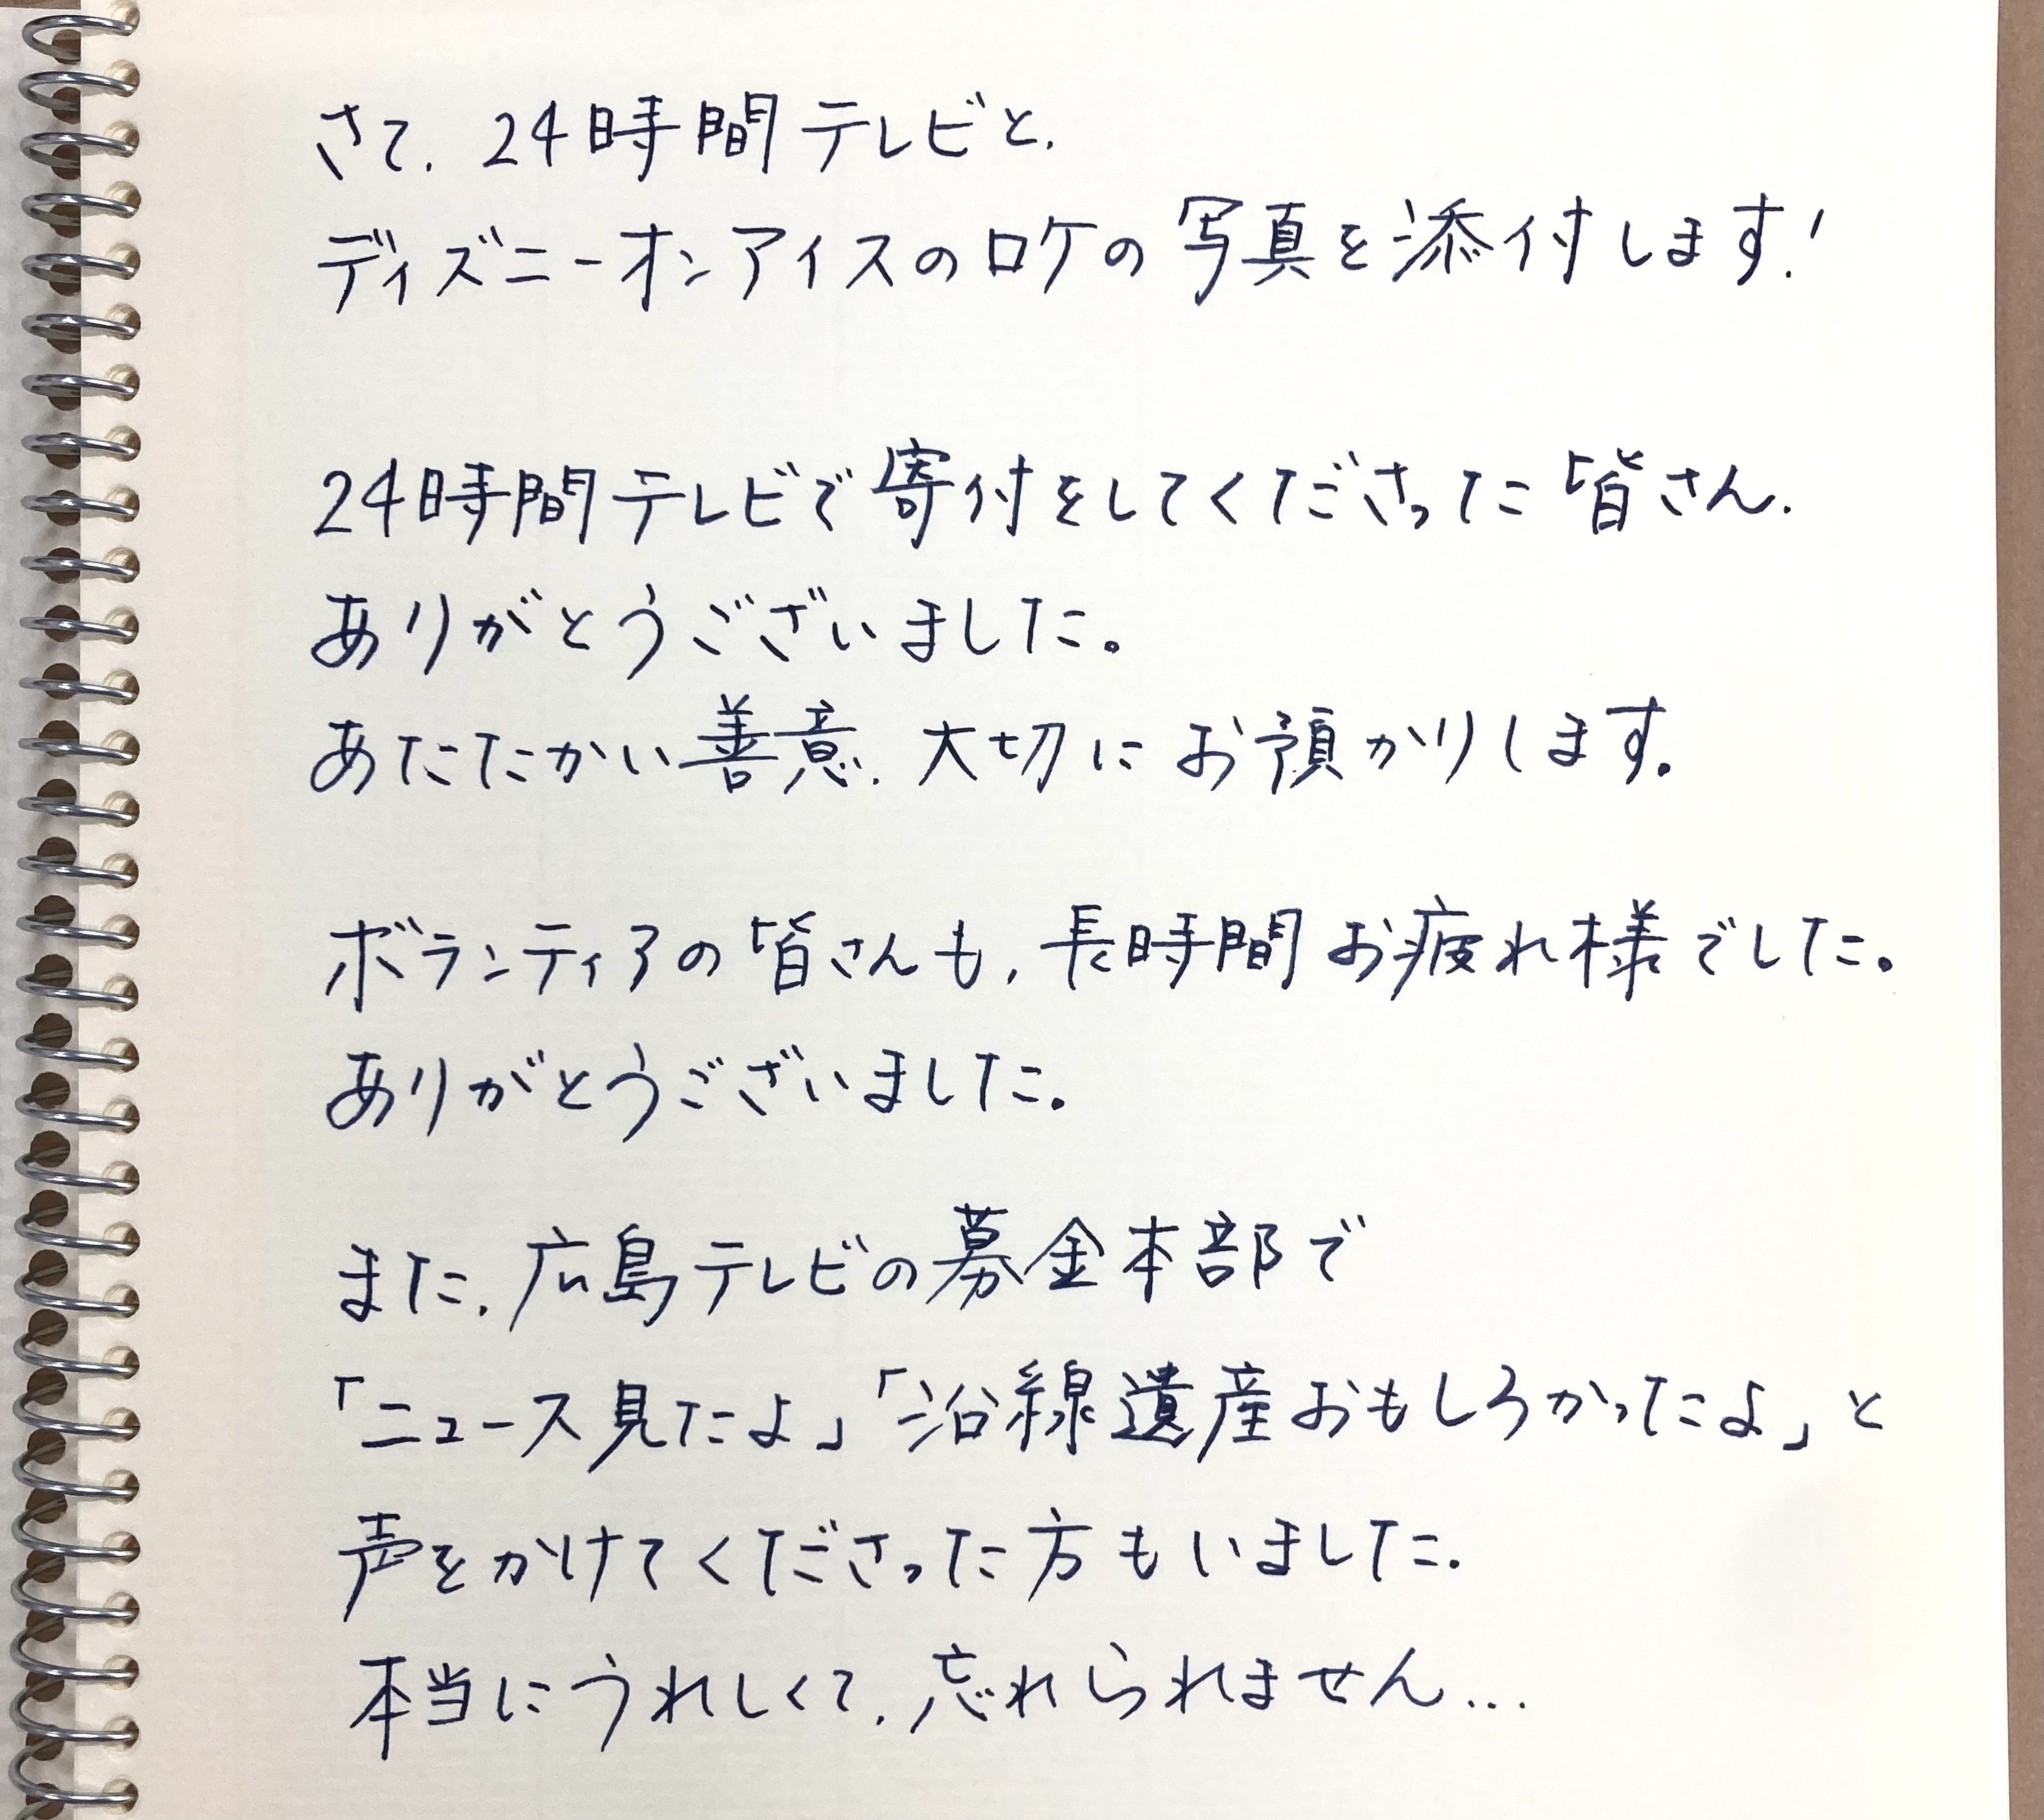 さて、24時間テレビと、
ディズニーオンアイスのロケの写真を添付します!
24時間テレビで寄付をしてくださった皆さん、
ありがとうございました。
あたたかい善意、大切にお預かりします。
ボランティアの皆さんも、長時間お疲れ様でした。
ありがとうございました。
また、広島テレビの募金本部で
「ニュース見たよ」「沿線遺産おもしろかったよ」と
声をかけてくださった方もいました。
本当にうれしくて、忘れられません...